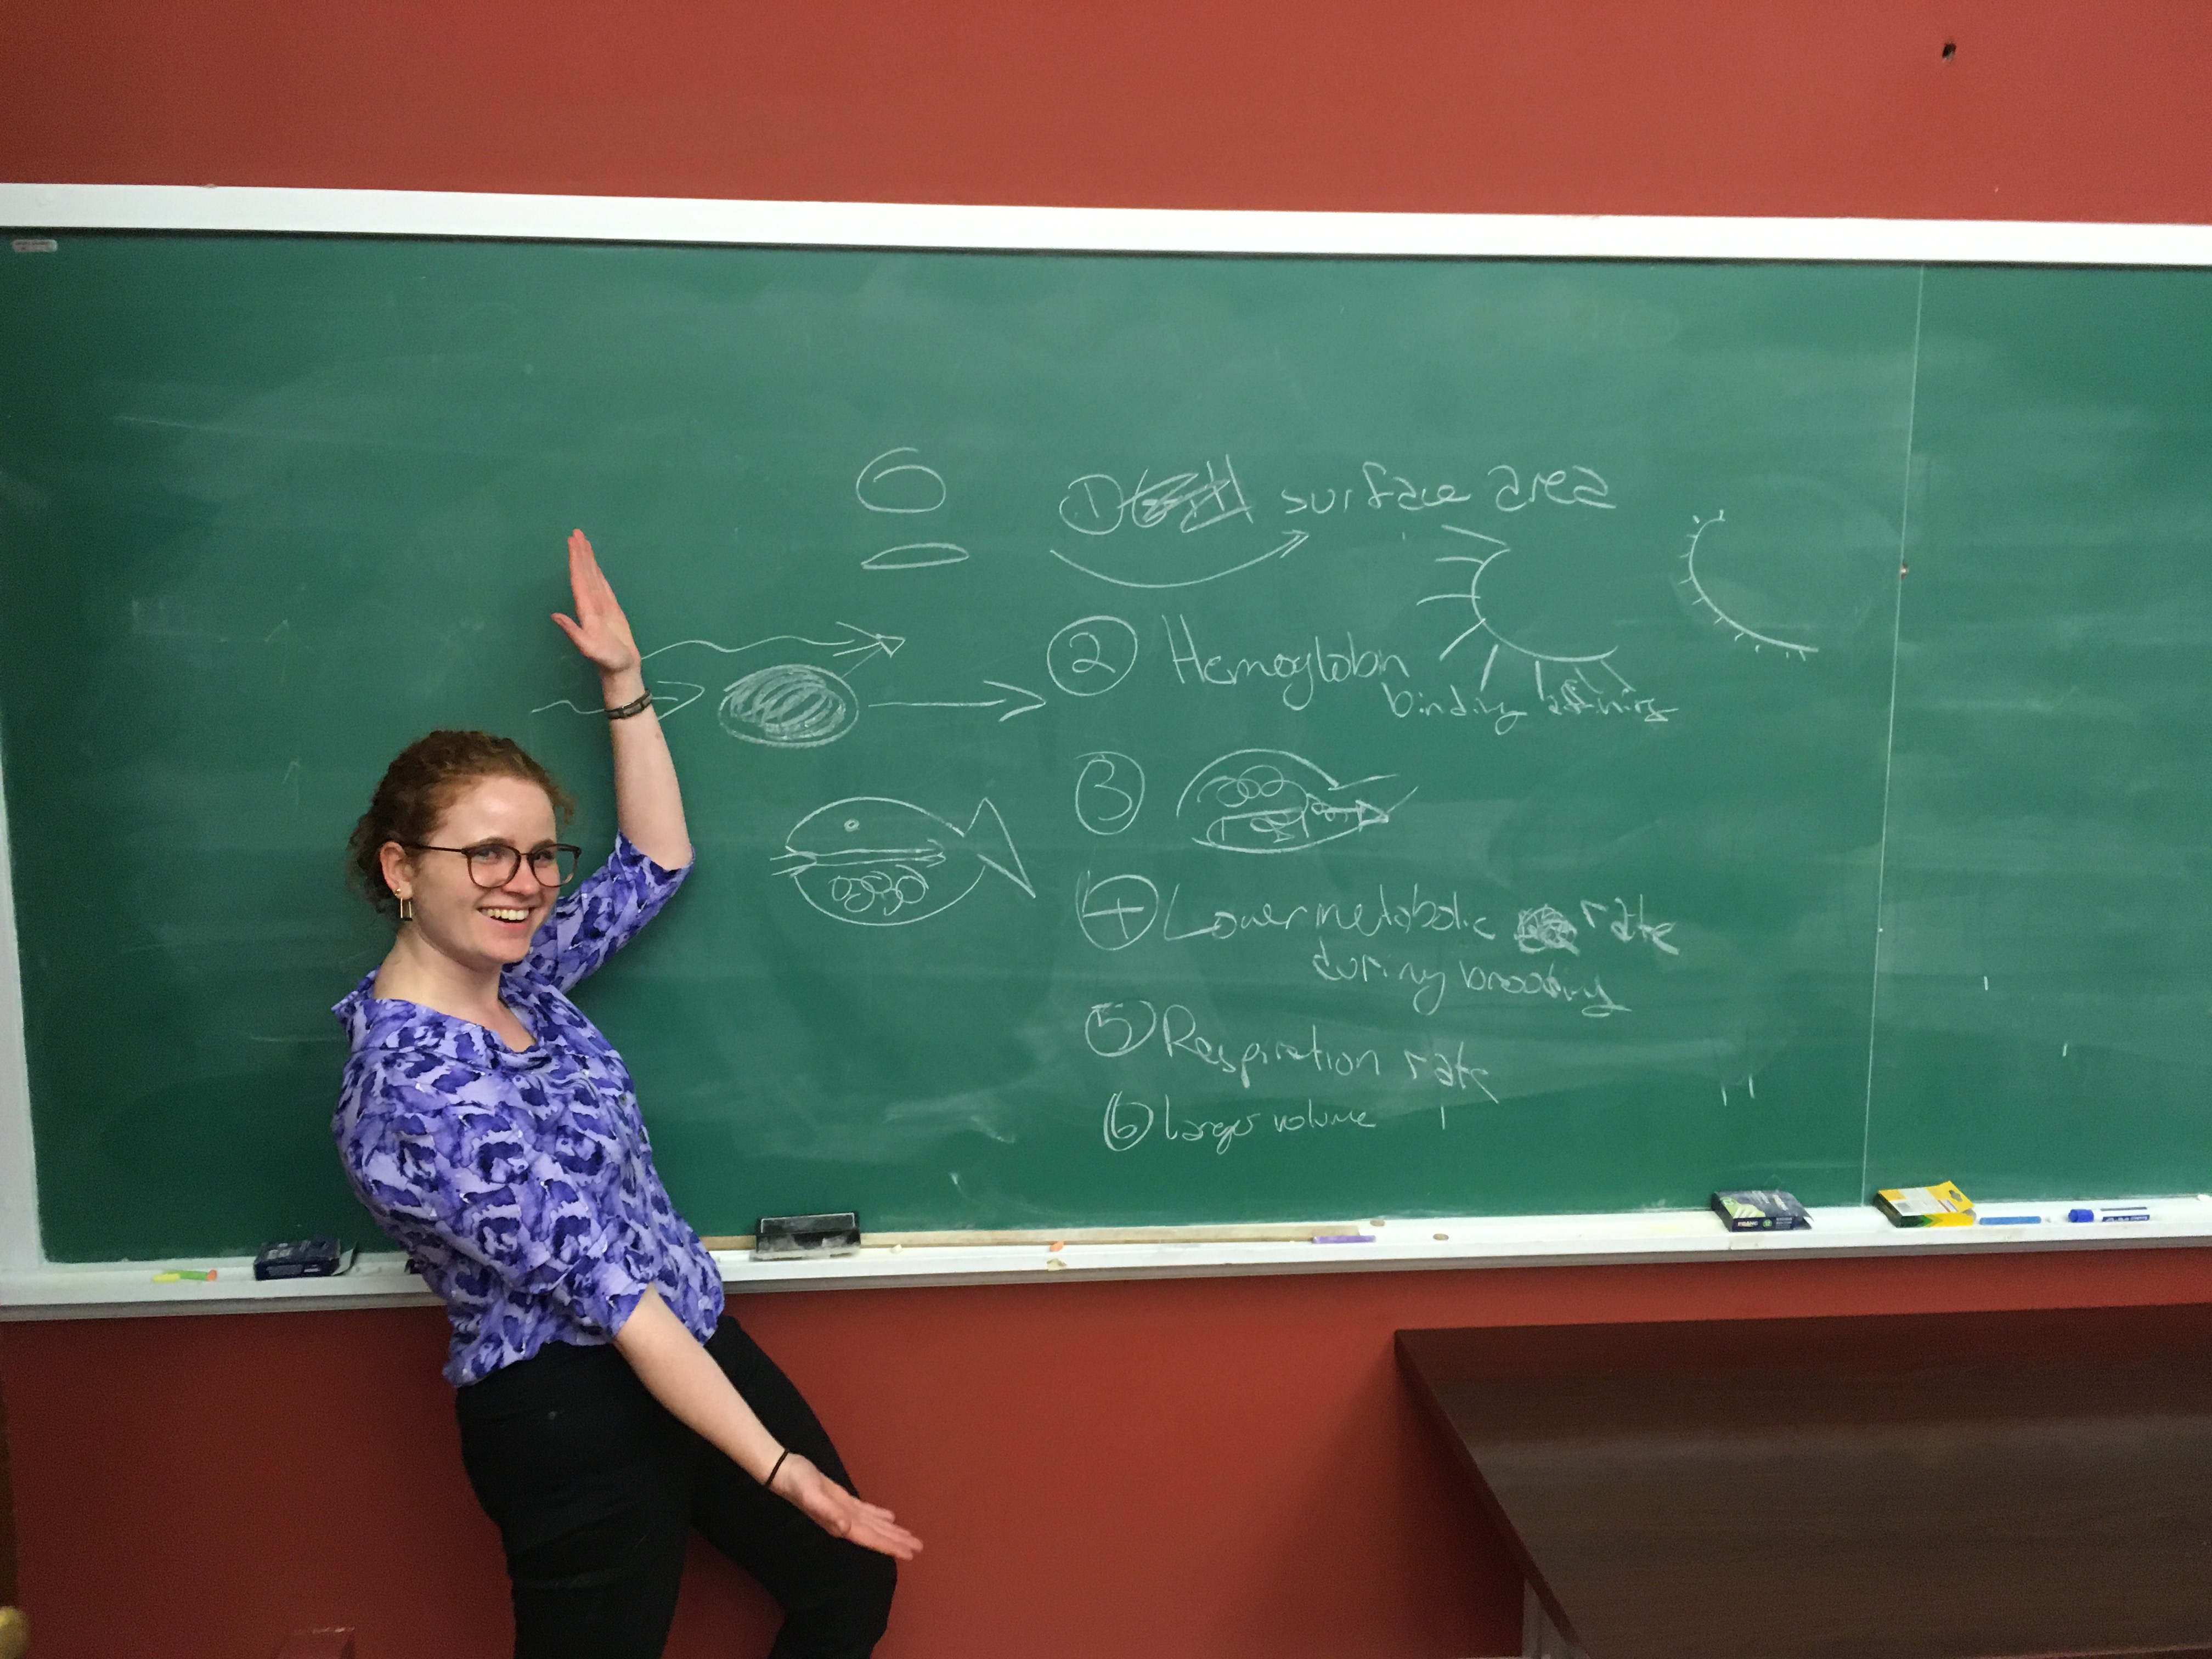 ① surface area
② Hemoglobin
binding affinity
③
④ Lower metabolic rate
during brooding
⑤ Respiration rate
⑥ larger volume